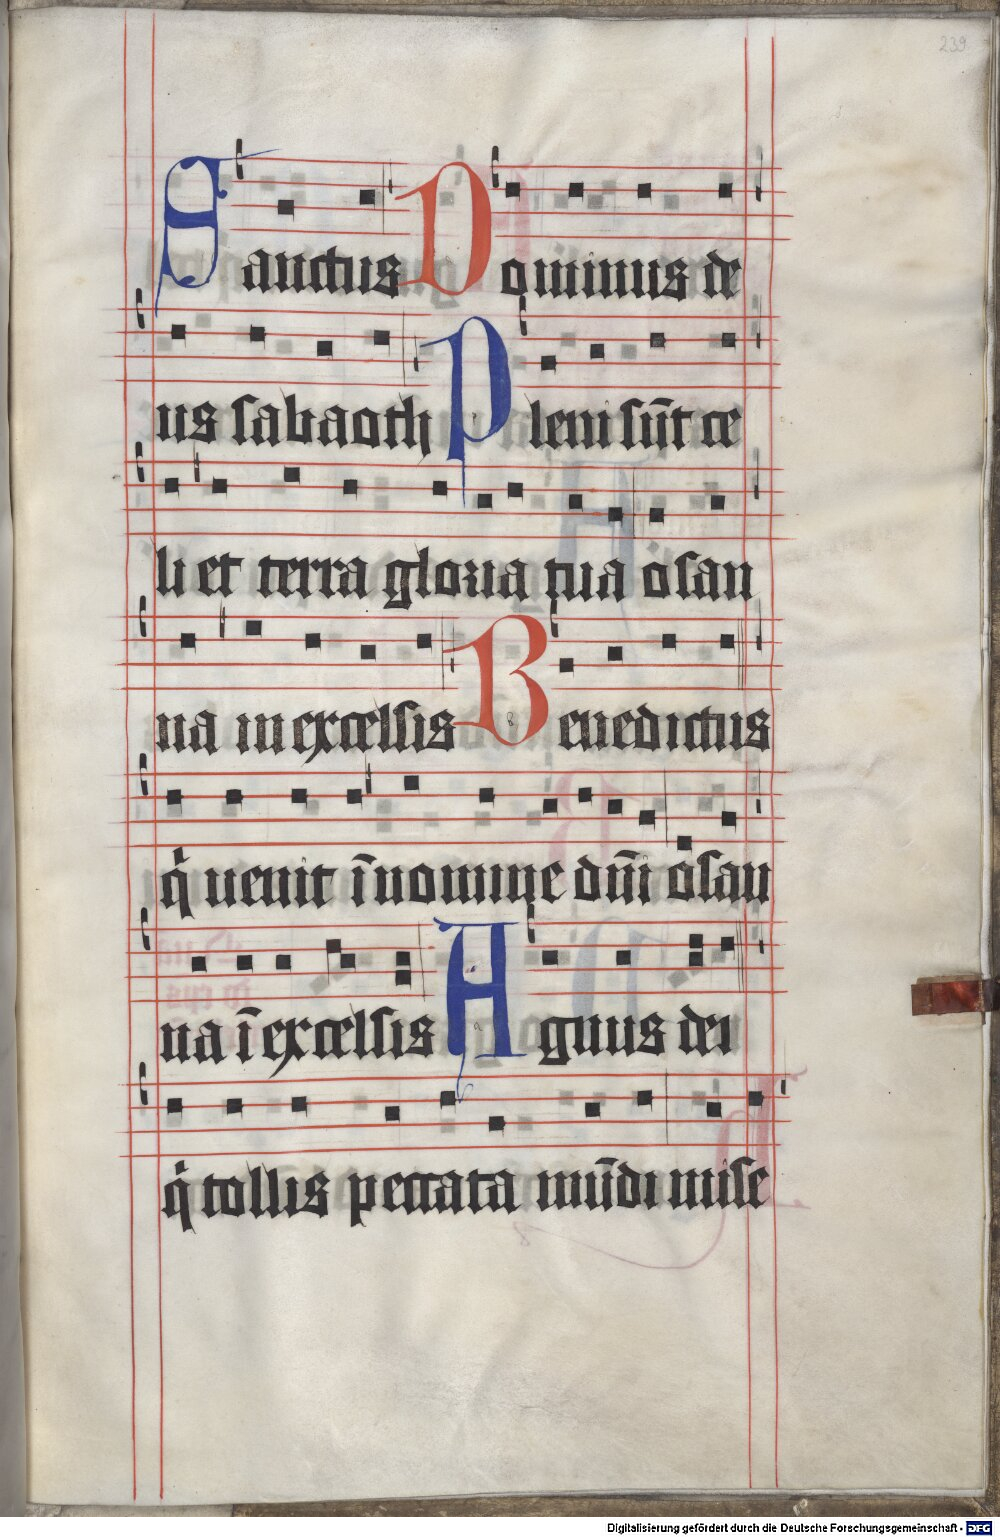 239
Sanctus Dominus de
us sabaoth Pleni sūt ce
li et terra gloria tua osan
na in excelsis Benedictus
q̇ uenit ī nomine dn̄i osan
na ī excelsis Agnus dei
q̇ tollis peccata mūdi mise
Digitalisierung gefördert durch die Deutsche Forschungsgemeinschaft - DFG